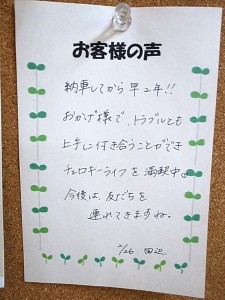 お客様の声
納車してから早2年!!
おかげ様で、トラブルとも
上手に付き合うことができ
チェロキーライフを満喫中。
今後は、友だちを
連れてきますね。
2/26 田辺